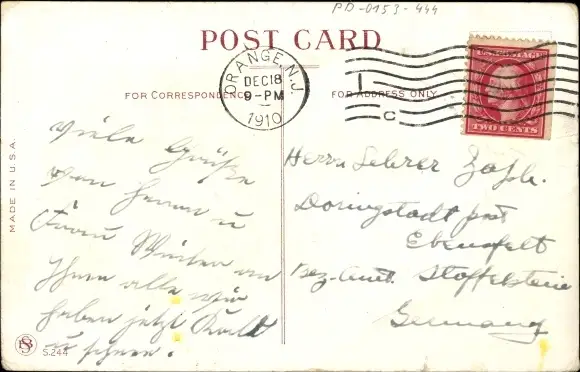 PD-0153-444
POST CARD
ORANGE, N.J.
DEC 18
9-PM
1910
1
C
U.S. POSTAGE
TWO CENTS
FOR CORRESPONDENCE
FOR ADDRESS ONLY
MADE IN U.S.A.
Viele Grüße
von Herrn u
Frau
Ihnen alle wir
haben jetzt Kalt
u schnee.
Herrn Lehrer
Döringstadt post
Ebensfelt
Bez. Amt. Staffelstein
Germany
S.244